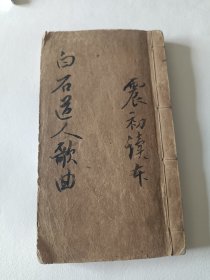 震初讀本
白石道人歌曲